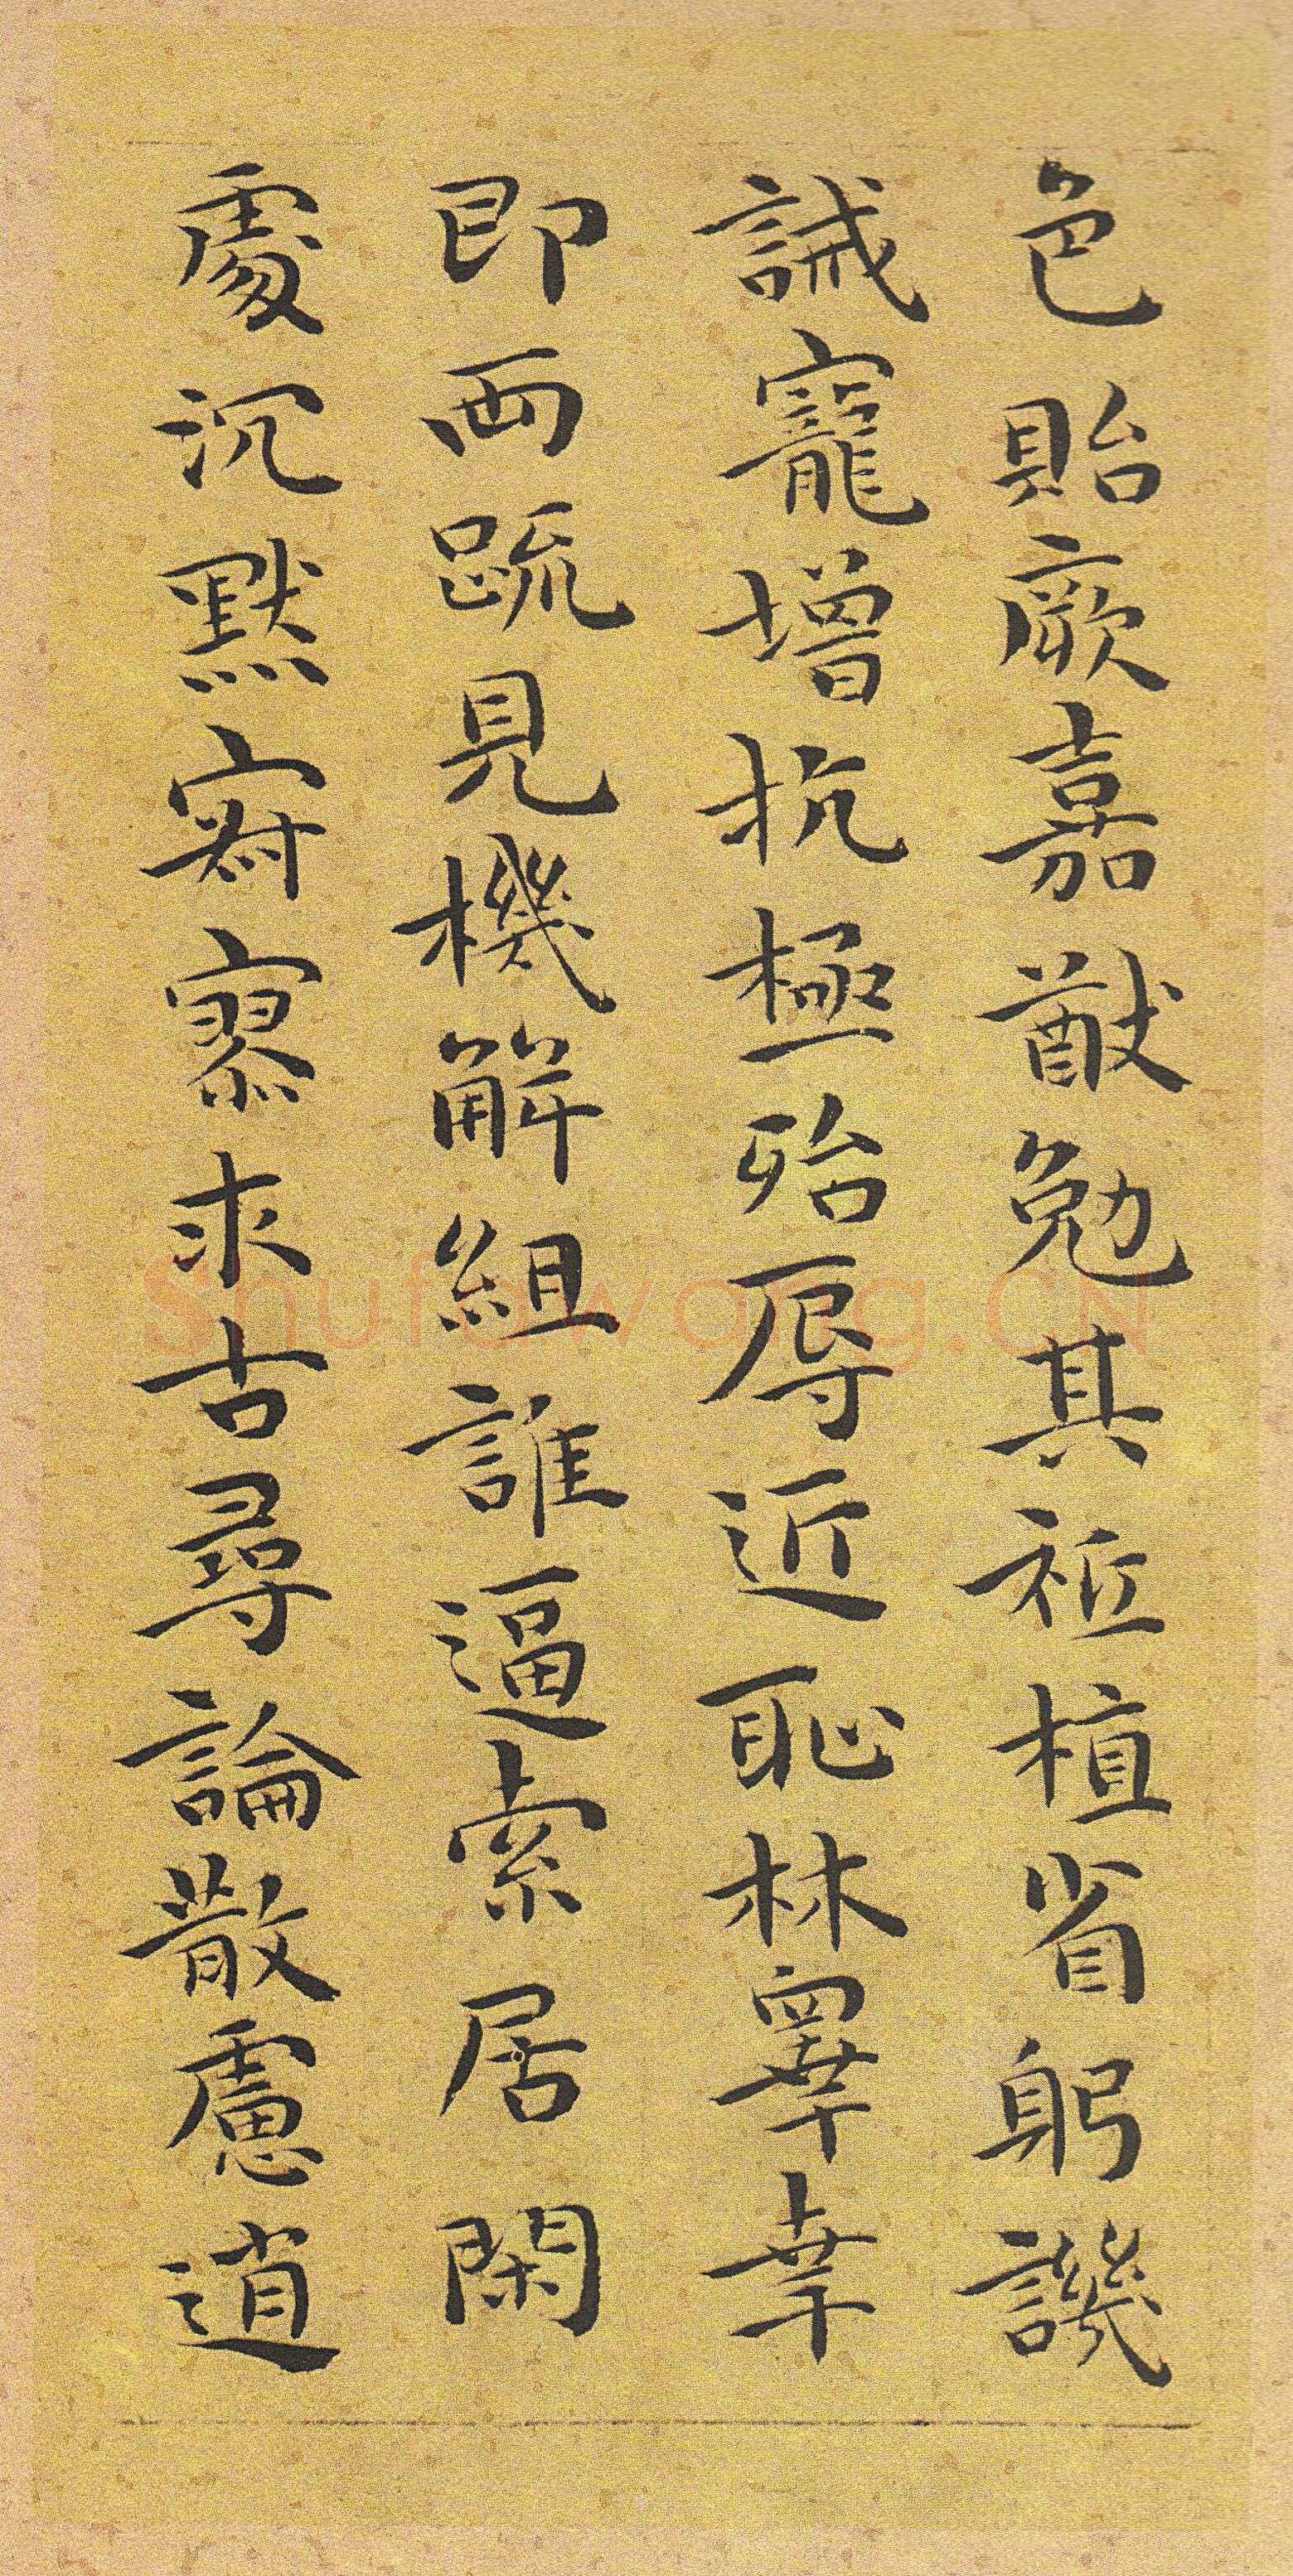 色貽厥嘉猷勉其祗植省躬譏
誡寵增抗極殆辱近恥林睪幸
即兩疏見機解組誰逼索居閑
處沉默寂寥求古尋論散慮逍
Shufawang.CN